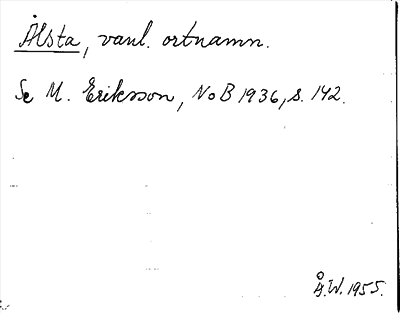 Ålsta, vanl. ortnamn.
Se M. Eriksson, NoB 1936, s. 142.
Å.W. 1955.